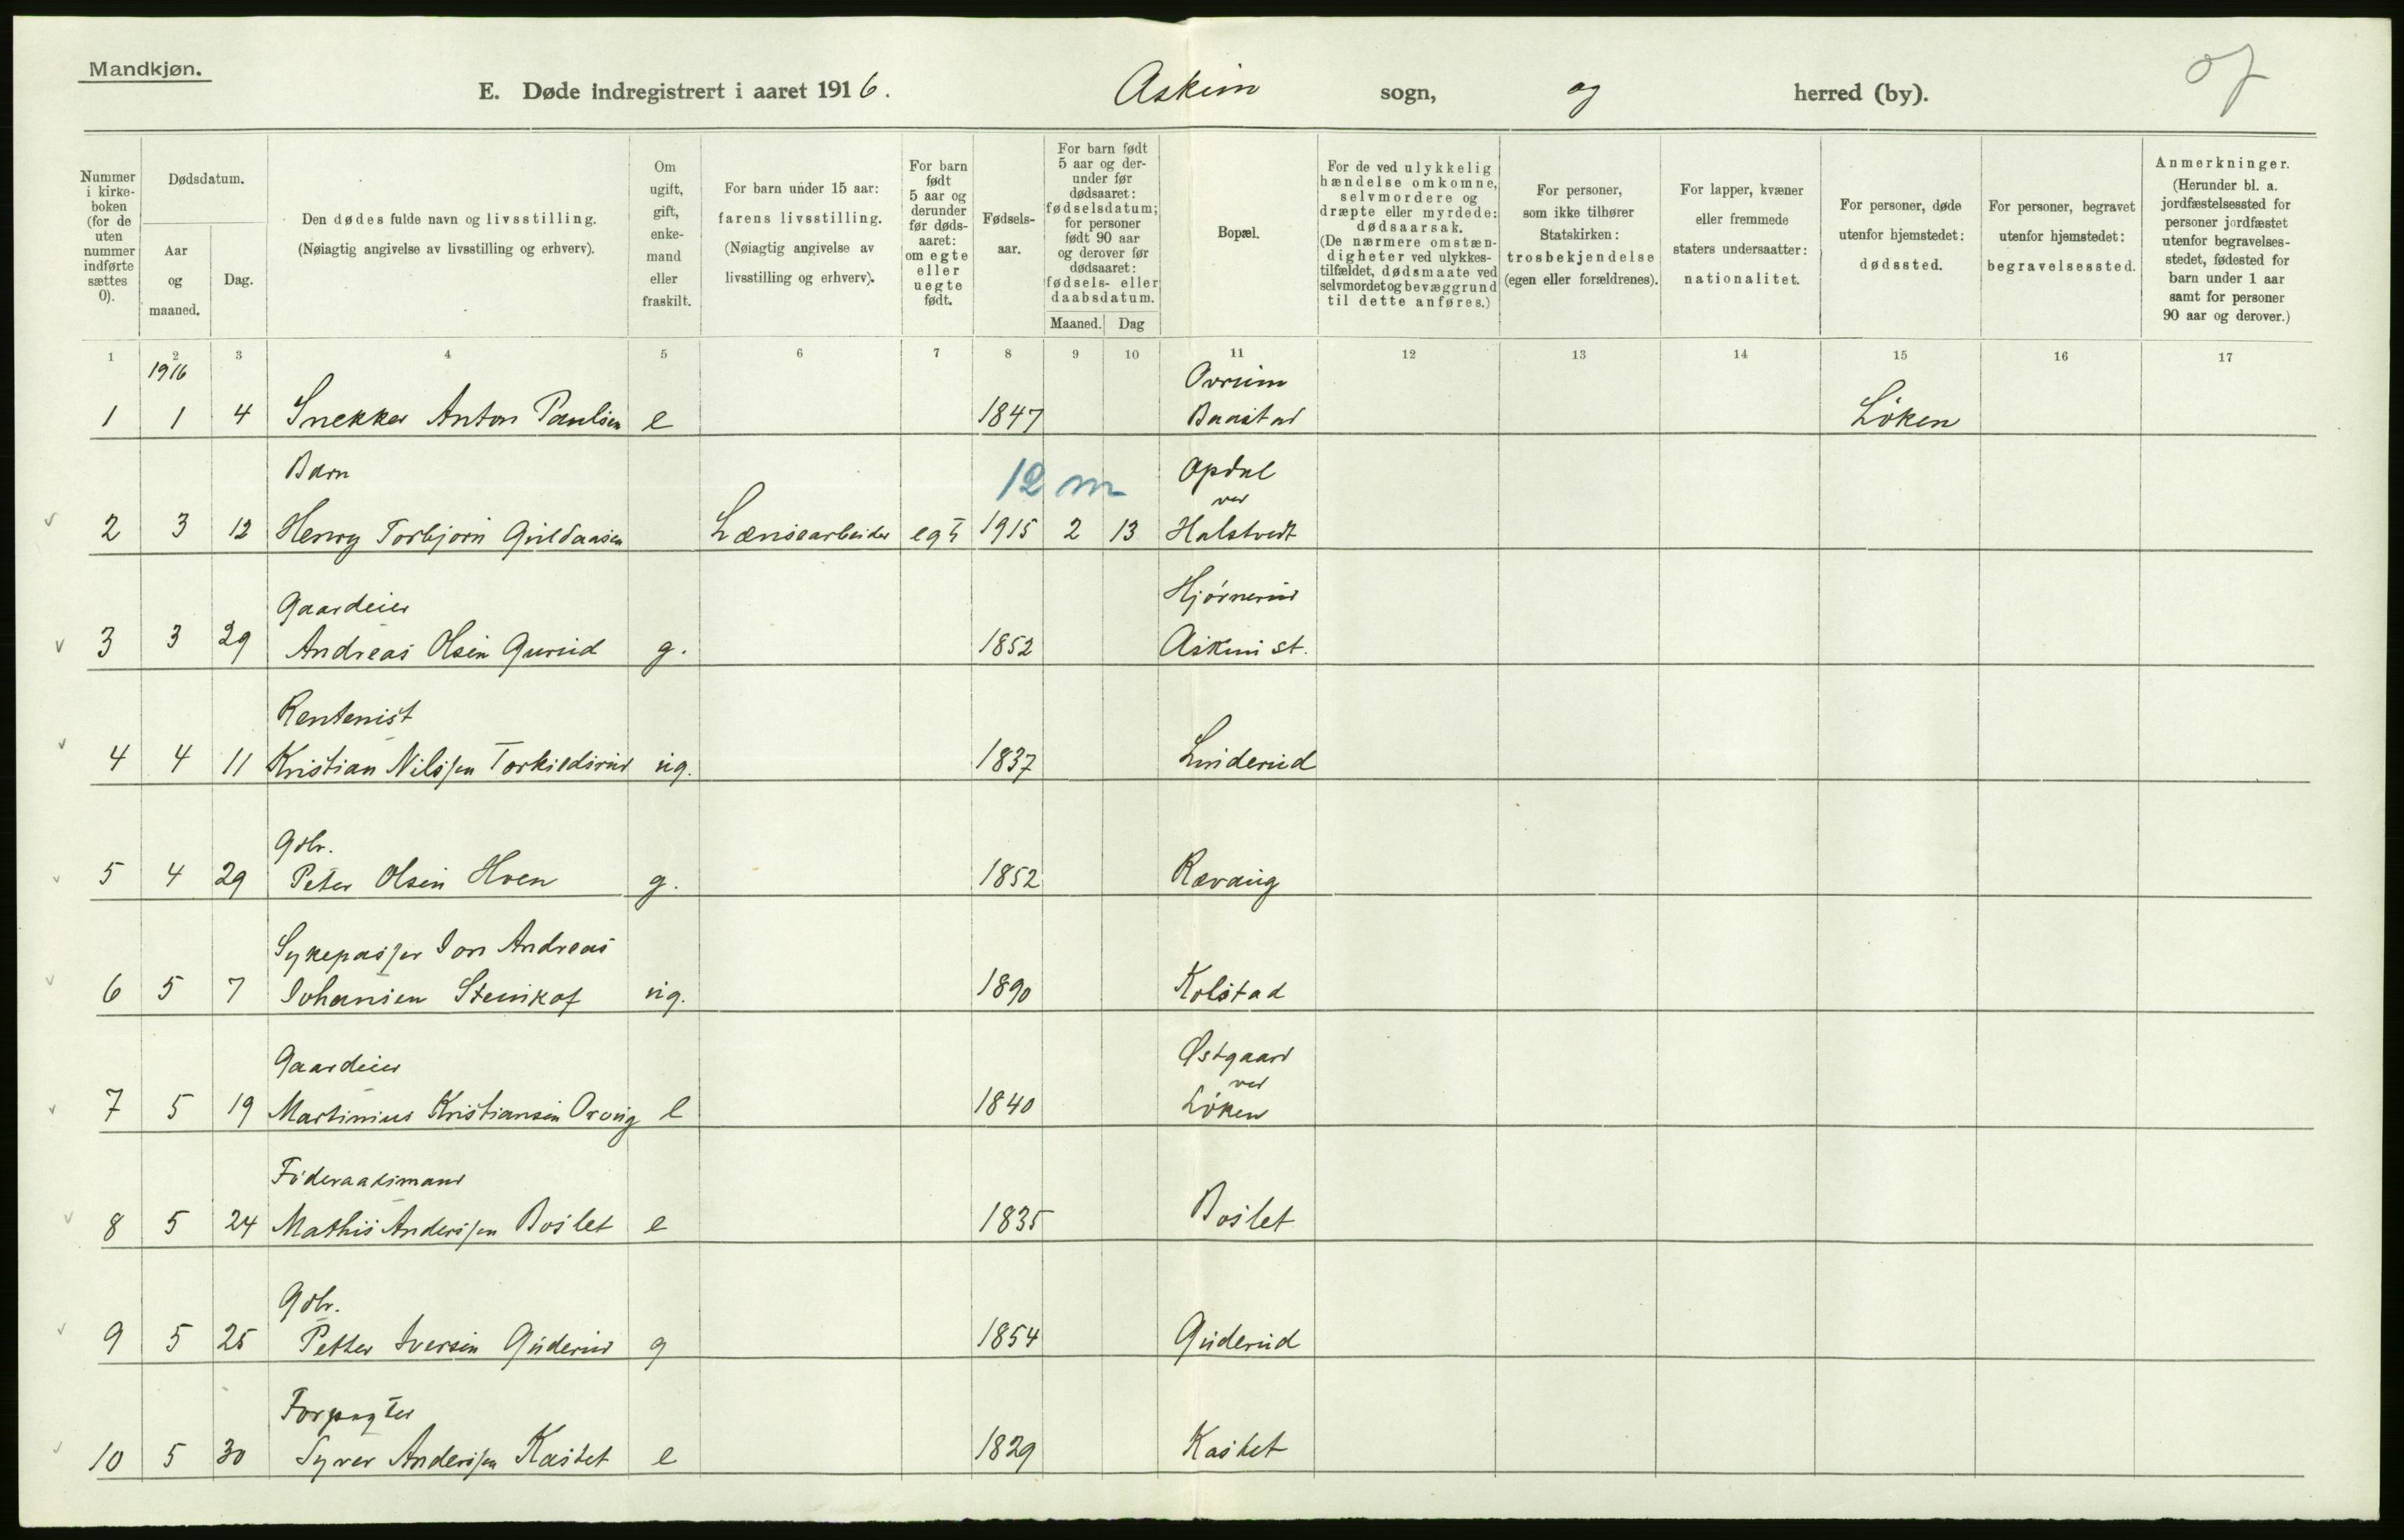 Mandkjøn.
E. Døde indregistrert i aaret 1916. Askim sogn, og herred (by).
Nummer i kirke-boken (for de uten nummer indførte sættes 0).
Dødsdatum.
Aar og maaned.
Dag.
Den dødes fulde navn og livsstilling.
(Nøiagtig angivelse av livsstilling og erhverv).
Om ugift, gift, enke-mand eller fraskilt.
For barn under 15 aar:
farens livsstilling.
(Nøiagtig angivelse av livsstilling og erhverv).
For barn født 5 aar og derunder før døds-aaret: om egte eller uegte født.
Fødsels-aar.
For barn født 5 aar og der-under før dødsaaret: fødselsdatum; for personer født 90 aar og derover før dødsaaret: fødsels- eller daabsdatum.
Maaned. Dag
Bopæl.
For de ved ulykkelig hændelse omkomne, selvmordere og dræpte eller myrdede: dødsaarsak.
(De nærmere omstæn-digheter ved ulykkes-tilfældet, dødsmaate ved selvmordet og bevæggrund til dette anføres.)
For personer, som ikke tilhører Statskirken: trosbekjendelse (egen eller forældrenes).
For lapper, kvæner eller fremmede staters undersaatter: nationalitet.
For personer, døde utenfor hjemstedet: dødssted.
For personer, begravet utenfor hjemstedet: begravelsessted.
Anmerkninger.
(Herunder bl. a. jordfæstelsessted for personer jordfæstet utenfor begravelses-stedet, fødested for barn under 1 aar samt for personer 90 aar og derover.)
1 2 3 4 5 6 7 8 9 10 11 12 13 14 15 16 17
1916
1 1 4 Snekker Anton Paulsen e 1847 Baastad Løken
Barn 12 m Opdal
ved
2 3 12 Henry Torbjørn Lænsearbeider egt 1915 2 13 Halstvedt
Gaardeier Hjørnerud
3 3 29 Andreas Olsen Gurud g. 1852 Askim st.
Rentenist
4 4 11 Kristian Nilssen Torkildsrud ug. 1837 Linderud
Gdbr.
5 4 29 Peter Olsen Hoen g. 1852 Rævaug
Sykepasser Jon Andreas
6 5 7 Johansen Stenikof ug. 1890 Kolstad
Gaardeier Østgaard
ved
7 5 19 Martinius Kristiansen e 1840 Løken
Føderaadsmand
8 5 24 Mathis Anderssen Boslet e 1835 Boslet
Gdbr.
9 5 25 Petter Iversen Guderud g 1854 Guderud
Forpagter
10 5 30 Syver Anderssen Kastet e 1829 Kastet